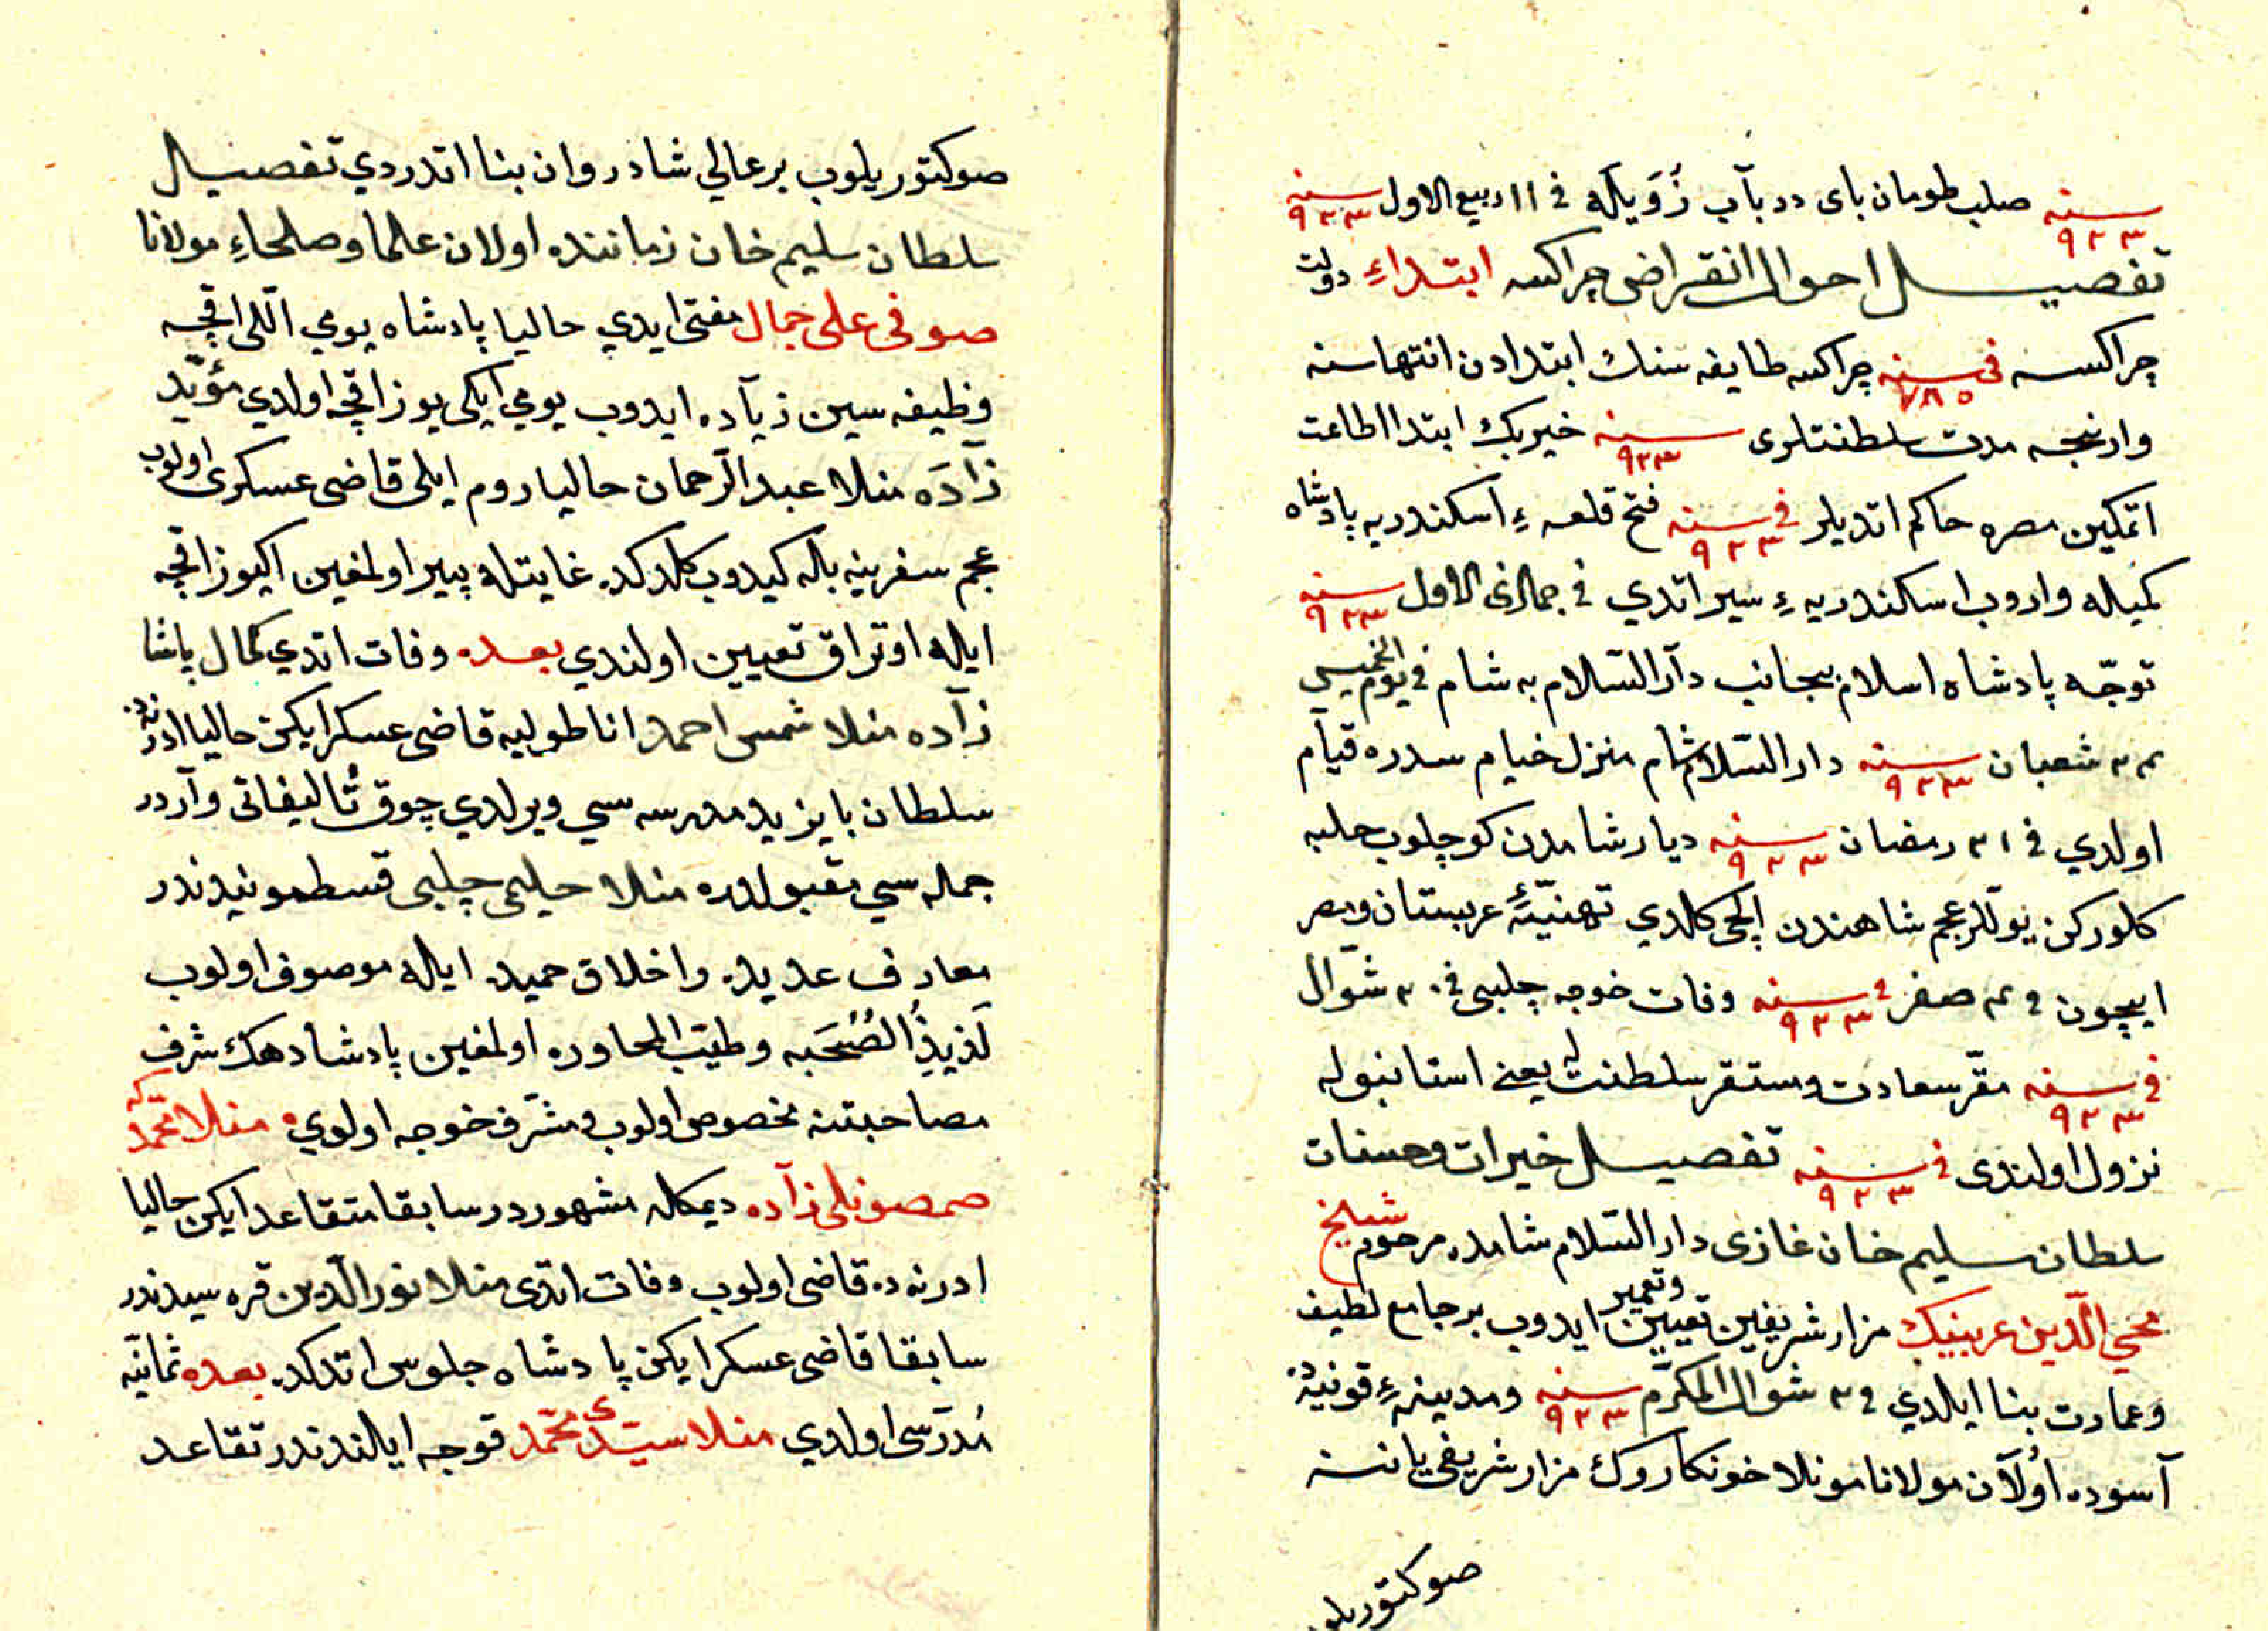 سنه ٩٢٣ صلب طومان باى در بآب زُوَيلَه في ١١ ربيع الاول سنه ٩٢٣
تفصيـــل احوال انقراض چراكسه ابتداءِ دولت
چراكسه فى سنه ٧٨٥ چراكسه طايفه سنك ابتدادن انتهاسنه
وارنجه مدت سلطنتلرى سنه ٩٢٣ خيربك ابتدا اطاعت
اتمكين مصره حاكم اتديلر فى سنه ٩٢٣ فتح قلعهءِ اسكندريه پادشاه
كميله واروب اسكندريهءِ سير اتدي في جماذى الاول سنه ٩٢٣
توجّه پادشاه اسلام بجانب دآر السّلام به شام في يوم الخميس
٢٢ شعبان سنه ٩٢٣ دار السّلام شام منزل خيام سدره قيام
اولدي في ٢١ رمضان سنه ٩٢٣ ديار شامدن كوچلوب حلبه
كلوركن يوللر عجم شاهندن ايلچى كلدي تهنيّهٔ عربستان ومصر
ايچون في ٢ صفر في سنه ٩٢٣ وفات خوجه چلبى في ٢٠ شوّال
في سنه ٩٢٣ مقرّ سعادت ومستقر سلطنت يعنى استانبوله
نزول اولندى في سنه ٩٢٣ تفصيـــل خيرات وحسنات
سلطان سليم خان غازى دار السّلام شامده مرحوم شيخ
محيي الّدين عربينك مزار شريفين تعيين وتعمير ايدوب بر جامع لطيف
وعمارت بنا ايلدي في ٢ شوال المكرّم سنه ٩٢٣ ومدينهءِ قونيه ده
آسوده اوُلآن مولانا مونلا خونكاروك مزار شريفى ياننه
صوكتوريلوب
صوكتوريلوب بر عالي شادروان بنا اتدردي تفصيـــل
سلطان سليم خان زماننده اولان علما وصلحاءِ مولانا
صوفى على جمال مفتى ايدي حاليا پادشاه يومي اللّى اقچه
وظيفه سين زيآده ايدوب يومي ايكى يوز اقچه اولدي مؤيّد
زآدَه منلا عبد الرّحمان حاليا روم ايلى قاضى عسكرى اولوب
عجم سفرينه بله كيدوب كلدكده غايتله پير اولمغين ايكيوز اقچه
ايله اوتراق تعيين اولندي بعده وفات اتدي كمال پاشا
زآده منلا شمس احمد اناطوليه قاضى عسكر ايكن حاليا ادرنه ده
سلطان بايزيد مدرسه سي ويرلدي چوق تُاليفاتى وآردر
جمله سي مقبولدره منلا حليمى چلبى قسطمونيدندر
معارف عديده واخلاق حميده ايله موصوف اولوب
لَذيذُ الصُّحَبه وطيّب المحاوره اولمغين پادشادهك شرف
مصاحبتنه مخصوص اولوب ومشرّف خوجه اولدي منلا محمّد كه
صمصونلى زآده ديمكله مشهوردر سابقا متقاعد ايكن حاليا
ادرنه ده قاضى اولوب وفات اتدى منلا نور الّدين قره سيدندر
سابقا قاضى عسكر ايكن پادشاه جلوس اتدكده بعده ثمانيّه
مُدَرّسى اولدي منلا سيّدى محمّد قوجه ايلندندر تقاعد